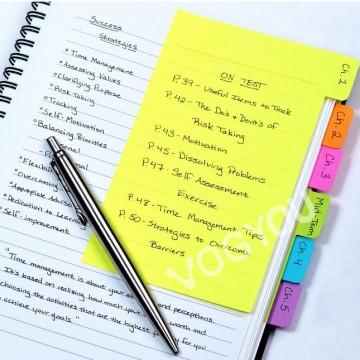 Success
Strategies
*Time Management
*Assessing Values
*Clarifying Purpose
*Risk Taking
*Tracking
*Self-Motivation
*Balancing Priorities
*Flexibil
*Overcoming
*Appropriate Advice
*Dedication to Learn
*Self-improvement
"Time management is about your
and perceptions.
It's based on realizing how much your
worth and
choosing the activities that are the highest
for you
achieve your goals."
ON TEST
P.39-Useful Items to Track
P.42-The Do's & Dont's of
Risk Taking
P.43-Motivation
P.45-Dissolving Problems
P.47-Self Assessment
Exercise
P.48-Time Management Tips
P.50-Strategies to Overcome
Barriers
Ch.1
Ch.2
Ch.3
Mid-Term
Ch.4
Ch.5
VOGYOU